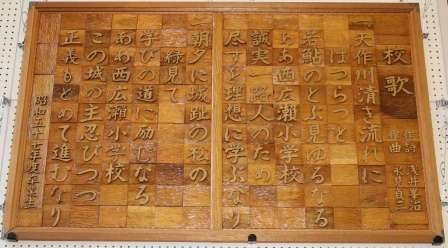 校歌
作詩 浅井
作曲
一 矢作川清き流れに
はつらつと
若鮎のとぶ見ゆるなる
ああ西広瀬小学校
誠実一路人のため
尽すを理想に学ぶなり
二 朝夕に城趾の松の
緑見て
学びの道に励むなる
ああ西広瀬小学校
この城の主忍びつつ
正義もとめて進むなり
昭和五十七年度卒業生